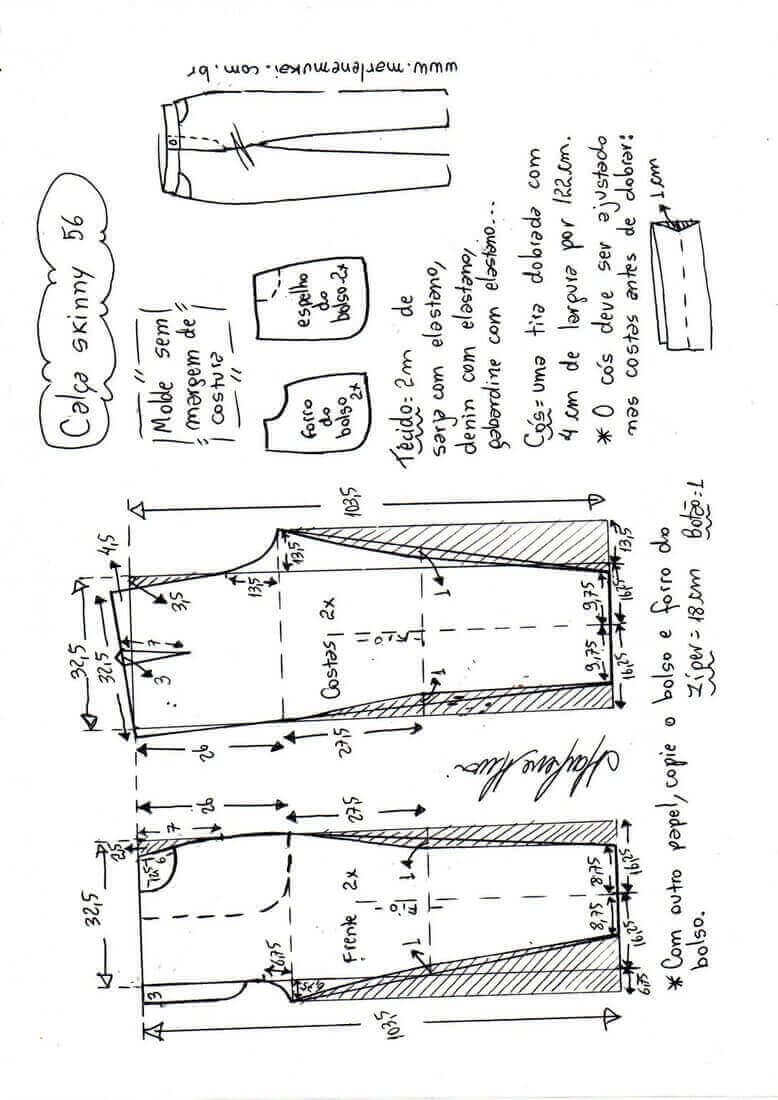 www.marlenemukai.com.br
Calça skinny 56
Molde sem
margem de
costura
forro
do
bolso
2x
espelho
do
bolso-2x
Tecido=2m de
sarja com elastano,
denin com elastano,
gabardine com elastano...
Cós=uma tira dobrada com
4 cm de largura por 122cm.
* O cós deve ser ajustado
nas costas antes de dobrar:
1cm
103,5
4,5
3,5
32,5
32,5
7
3
13,5
13,5
Costas 2x
26
27,5
1
1
9,75
9,75
16,25
16,25
13,5
26
27,5
2,5
7
32,5
6
3
Frente 2x
6,75
6,75
1
1
8,75
8,75
16,25
16,25
6,75
103,5
* Com outro papel, copie o bolso e forro do
bolso.
Zíper=18cm Botão=1